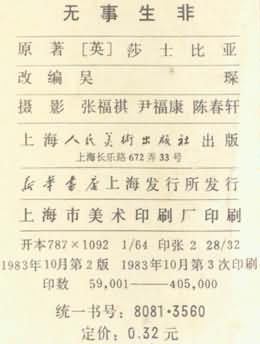 无事生非
原著[英]莎士比亚
改编吴琛
摄影 张福祺 尹福康 陈春轩
上海人民美術出版社 出版
上海长乐路672弄33号
新华書店上海发行所发行
上海市美术印刷厂印刷
开本787×1092 1/64 印张2 28/32
1983年10月第2版 1983年10月第3次印刷
印数 59,001——405,000
统一书号：8081·3560
定价：0.32元